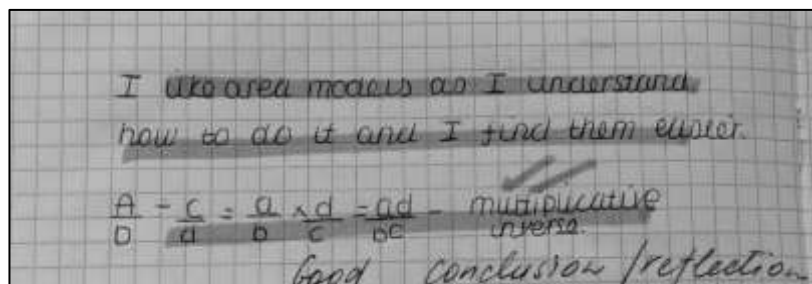 I like area models as I understand
how to do it and I find them easier.
A/b - c/d = a/b × d/c = ad/bc - multiplicative
inverse.
Good conclusion / reflection